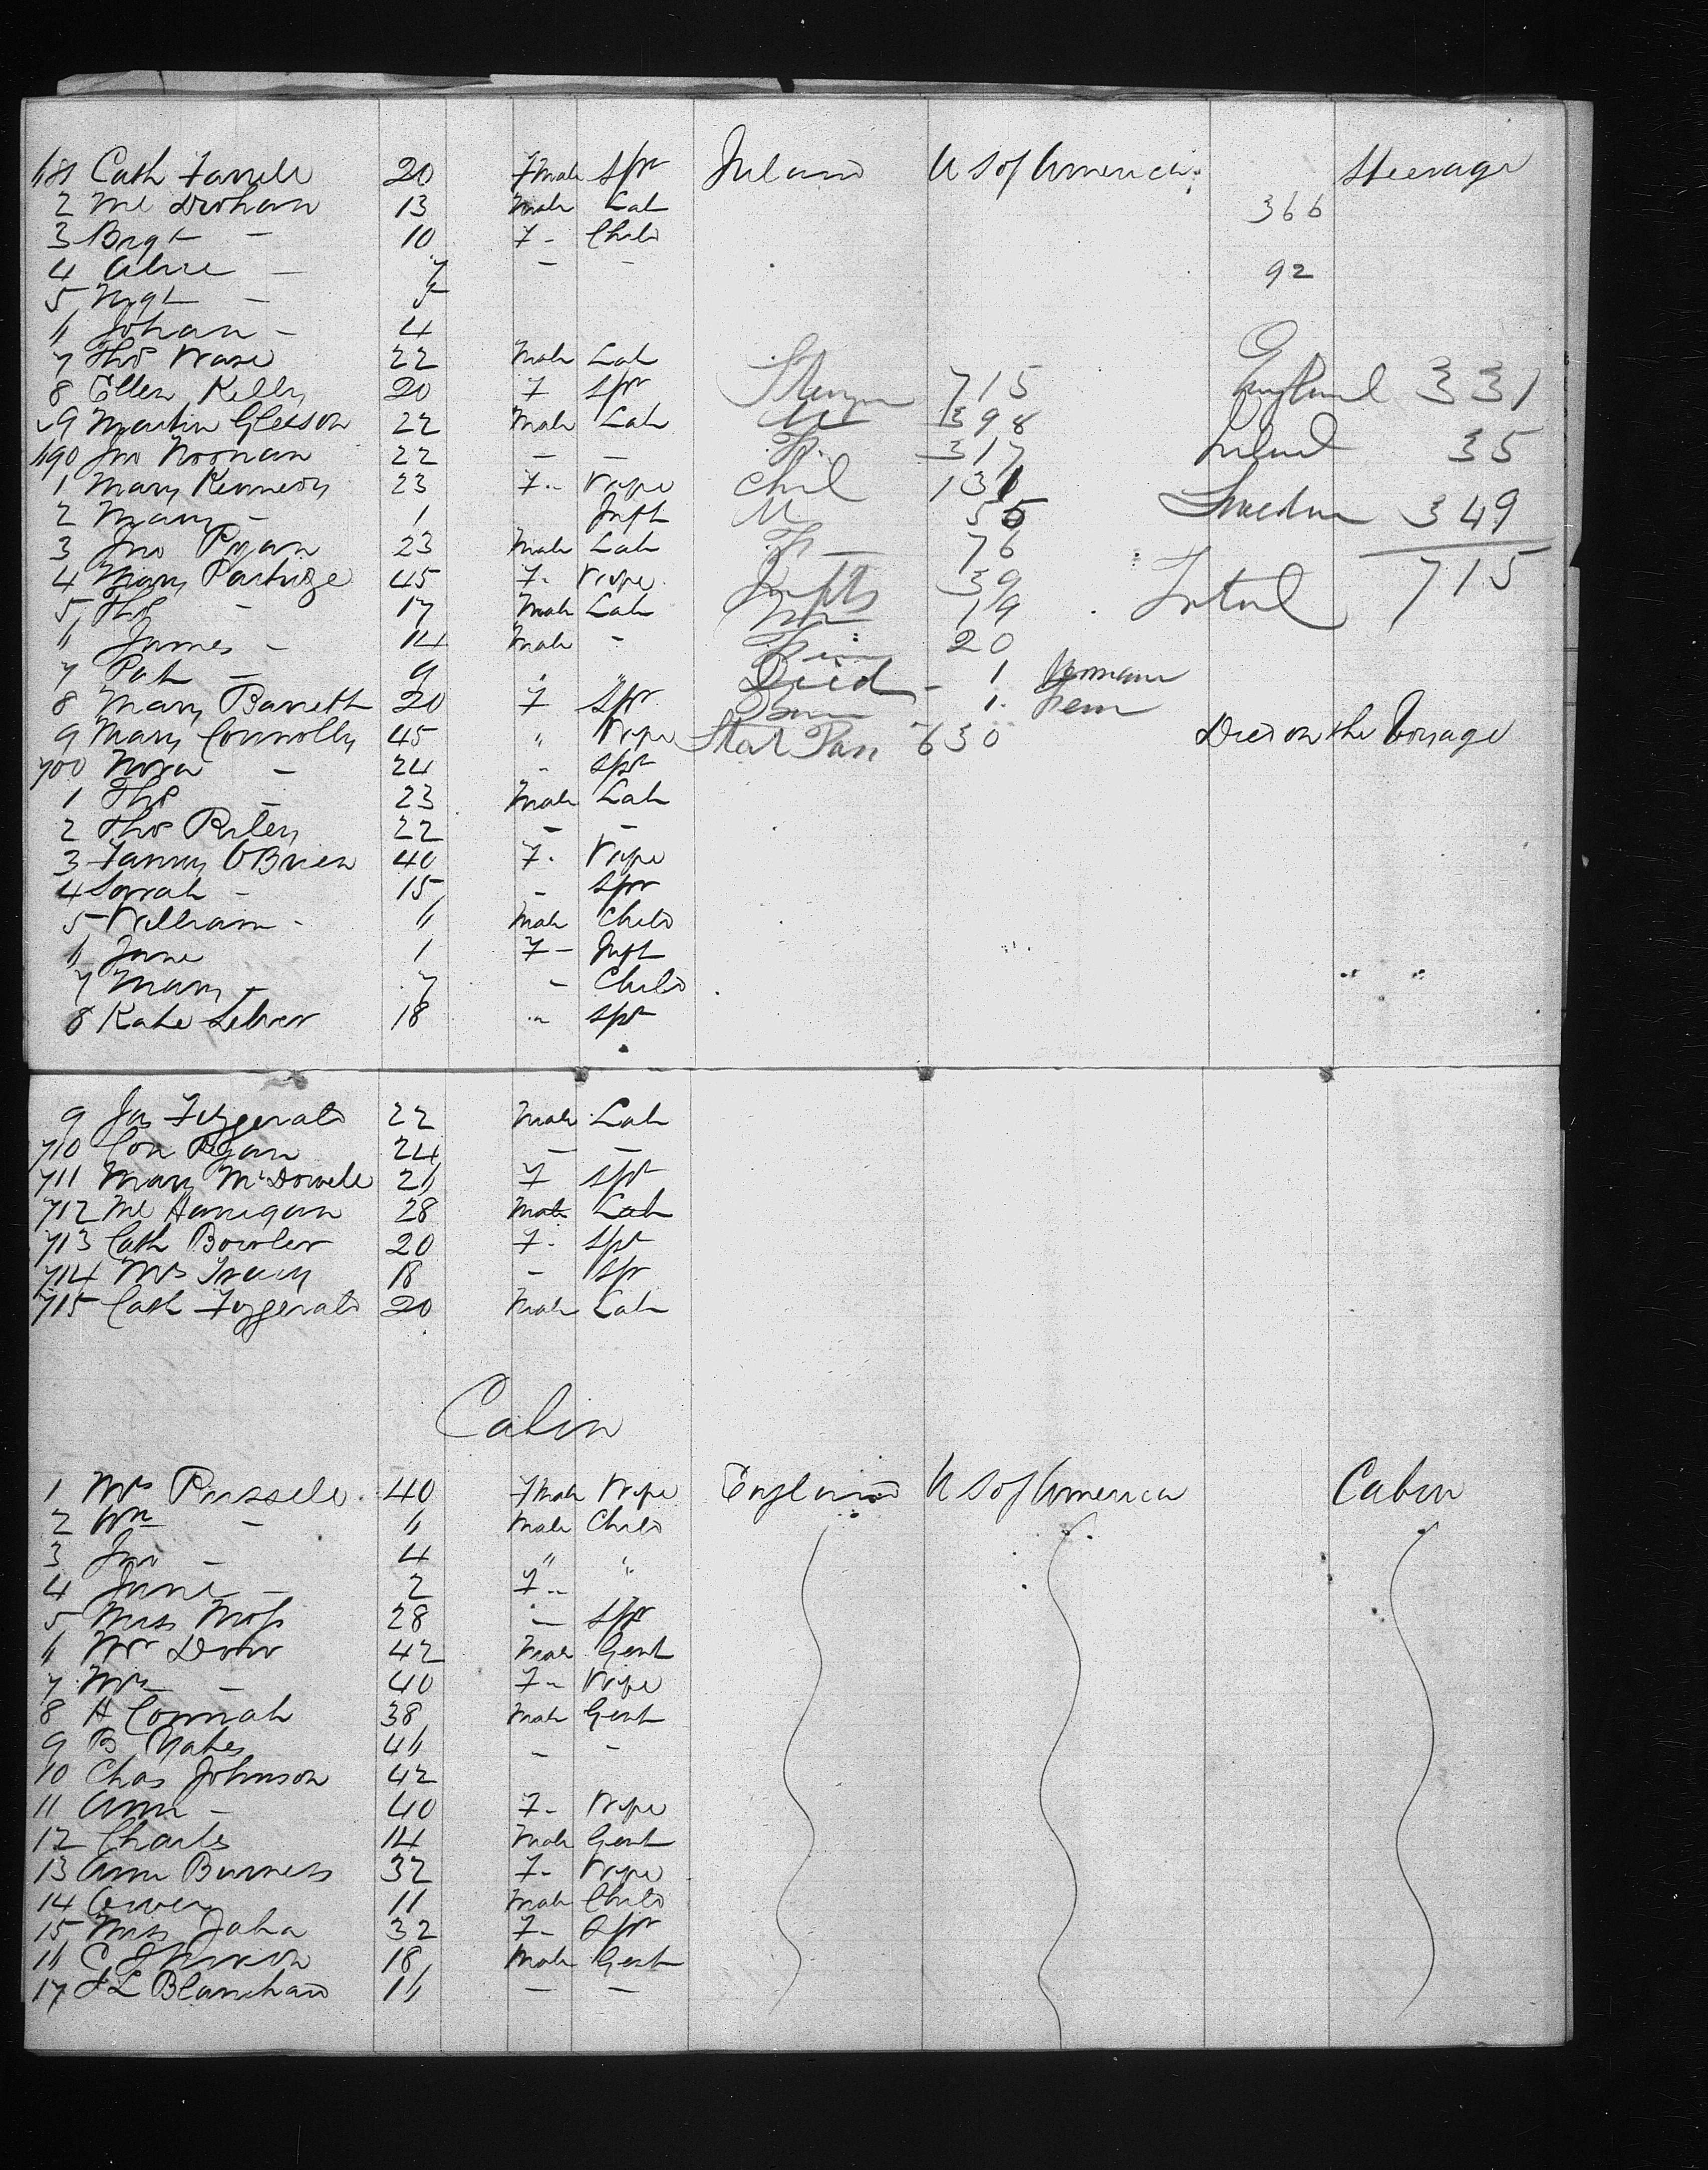 681 Cath Farrell 20 Fmale Spr Ireland U S of America Steerage
2 Ml Drohan 13 Male Lab 366
3 Brgt - 10 F - Child
4 Alice - 7 - - 92
5 Mgt - 5
6 Johan - 4
7 Thos Wase 22 Male Lab
8 Ellen Kelly 20 F Spr 715 England 331
9 Martin Gleeson 22 Male Lab M 398
690 Jno Noonan 22 - - F 317 Ireland 35
1 Mary Kennedy 23 F - Wife Chil 131
2 Mary - 1 Inft M 55 Sweden 349
3 Jno Ryan 23 Male Lab F 76
4 Mary Partridge 45 F - Wife Infts 39 Total 715
5 Thos - 17 Male Lab M 19
6 James - 14 Male - Fem 20
7 Pat - 9 " " Died - 1
8 Mary Barrett 20 F Spr 1 Fem
9 Mary Connolly 45 " Wife Stat Pass 630 Died on the Voyage
700 Nora - 24 " Spr
1 Thos - 23 Male Lab
2 Thos Riley 22 - -
3 Fanny OBrien 40 F - Wife
4 Sarah - 15 - Spr
5 William - 6 Male Child
6 Jane 1 F - Inft
7 Mary - 7 - Child
8 Kate 18 " Spr
9 Jas Fitzgerald 22 Male Lab
710 Con Ryan 24 - -
711 Mary McDowell 26 F Spr
712 Ml Hanigan 28 Male Lab
713 Cath Bowler 20 F - Spr
714 Mrs 18 - Spr
715 Cath Fitzgerald 20 Male Lab
Cabin
1 Mrs Russell 40 Fmale Wife England U S of America Cabin
2 Wm - 6 Male Child
3 Jno - 4 " "
4 Jane - 2 F - "
5 Miss Moss 28 - Spr
6 Mr 42 Male Gent
7 Mrs - 40 F - Wife
8 H Connah 38 Male Gent
9 B Yates 46 - -
10 Chas Johnson 42
11 Ann - 40 F - Wife
12 Charles 14 Male Gent
13 Ann Burness 32 F - Wife
14 11 Male Child
15 Miss 32 F - Spr
16 C 18 Male Gent
17 J L Blanchard 16 - -